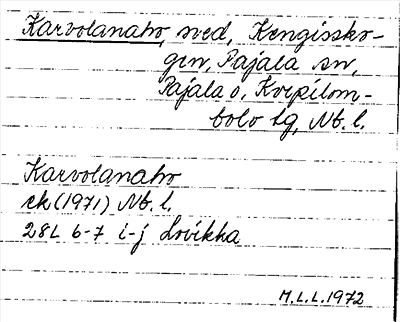 Karvolanaho, sved, Kengissko-
gen, Pajala sn,
Pajala o, Korpilom-
bolo tg, Nb. l.
Karvolanaho
ek (1971) Nb. l.
28L 6-7 i-j Lovikka
M.L.L. 1972